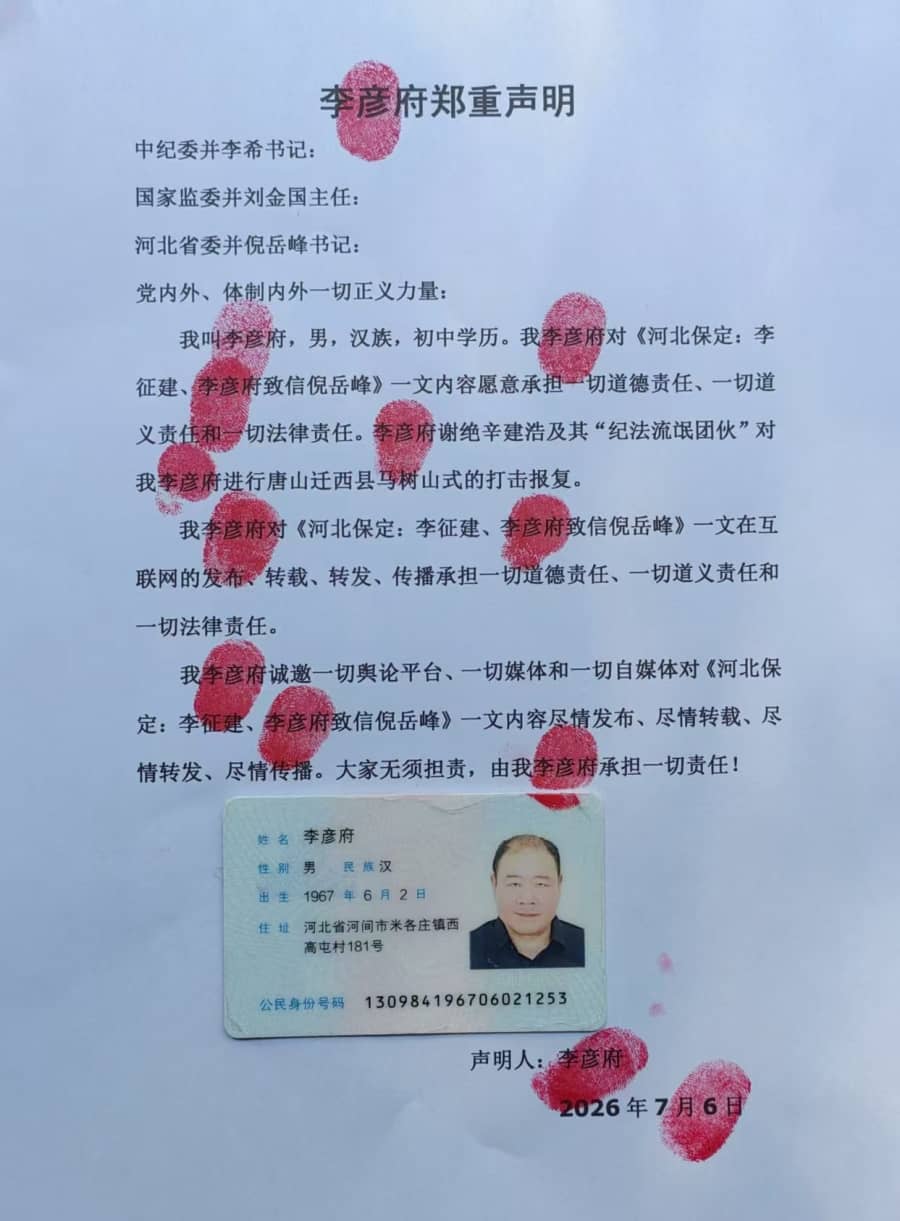 李彦府郑重声明
中纪委并李希书记：
国家监委并刘金国主任：
河北省委并倪岳峰书记：
党内外、体制内外一切正义力量：
我叫李彦府，男，汉族，初中学历。我李彦府对《河北保定：李
征建、李彦府致信倪岳峰》一文内容愿意承担一切道德责任、一切道
义责任和一切法律责任。李彦府谢绝辛建浩及其“纪法流氓团伙”对
我李彦府进行唐山迁西县马树山式的打击报复。
我李彦府对《河北保定：李征建、李彦府致信倪岳峰》一文在互
联网的发布、转载、转发、传播承担一切道德责任、一切道义责任和
一切法律责任。
我李彦府诚邀一切舆论平台、一切媒体和一切自媒体对《河北保
定：李征建、李彦府致信倪岳峰》一文内容尽情发布、尽情转载、尽
情转发、尽情传播。大家无须担责，由我李彦府承担一切责任！
姓名 李彦府
性别 男 民族 汉
出生 1967 年 6 月 2 日
住址 河北省河间市米各庄镇西
高屯村181号
公民身份号码 130984196706021253
声明人：李彦府
2026 年 7 月 6 日